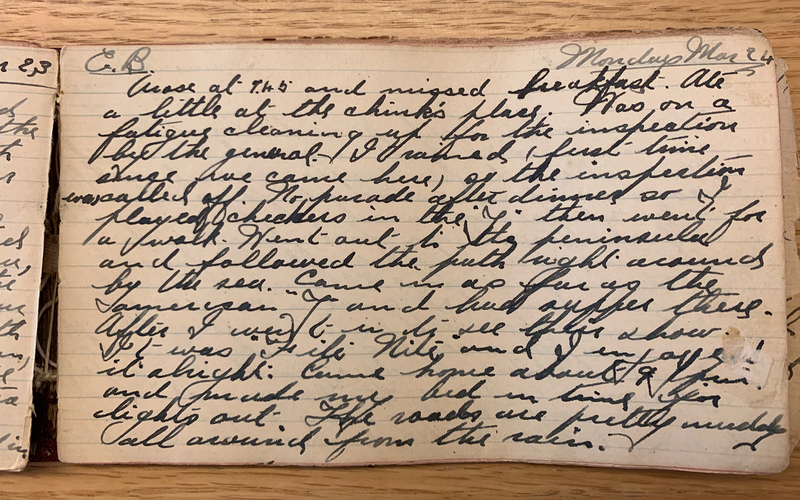 E. B. Monday Mar 24
Arose at 7.45 and missed breakfast. Ate
a little at the chink's place. Was on a
fatigue cleaning up for the inspection
by the general. It rained, first time
since we came here, so the inspection
was called off. No parade after dinner so I
played checkers in the "Y" then went for
a walk. Went out to the peninsula
and followed the path right around
by the sea. Came in as far as the
American "Y" and had supper there.
After I went in to see their show.
It was "Fifi Nite" and I enjoyed
it alright. Came home about 9 p.m.
and made my bed in time for
lights out. The roads are pretty muddy
all around from the rain.
23
the